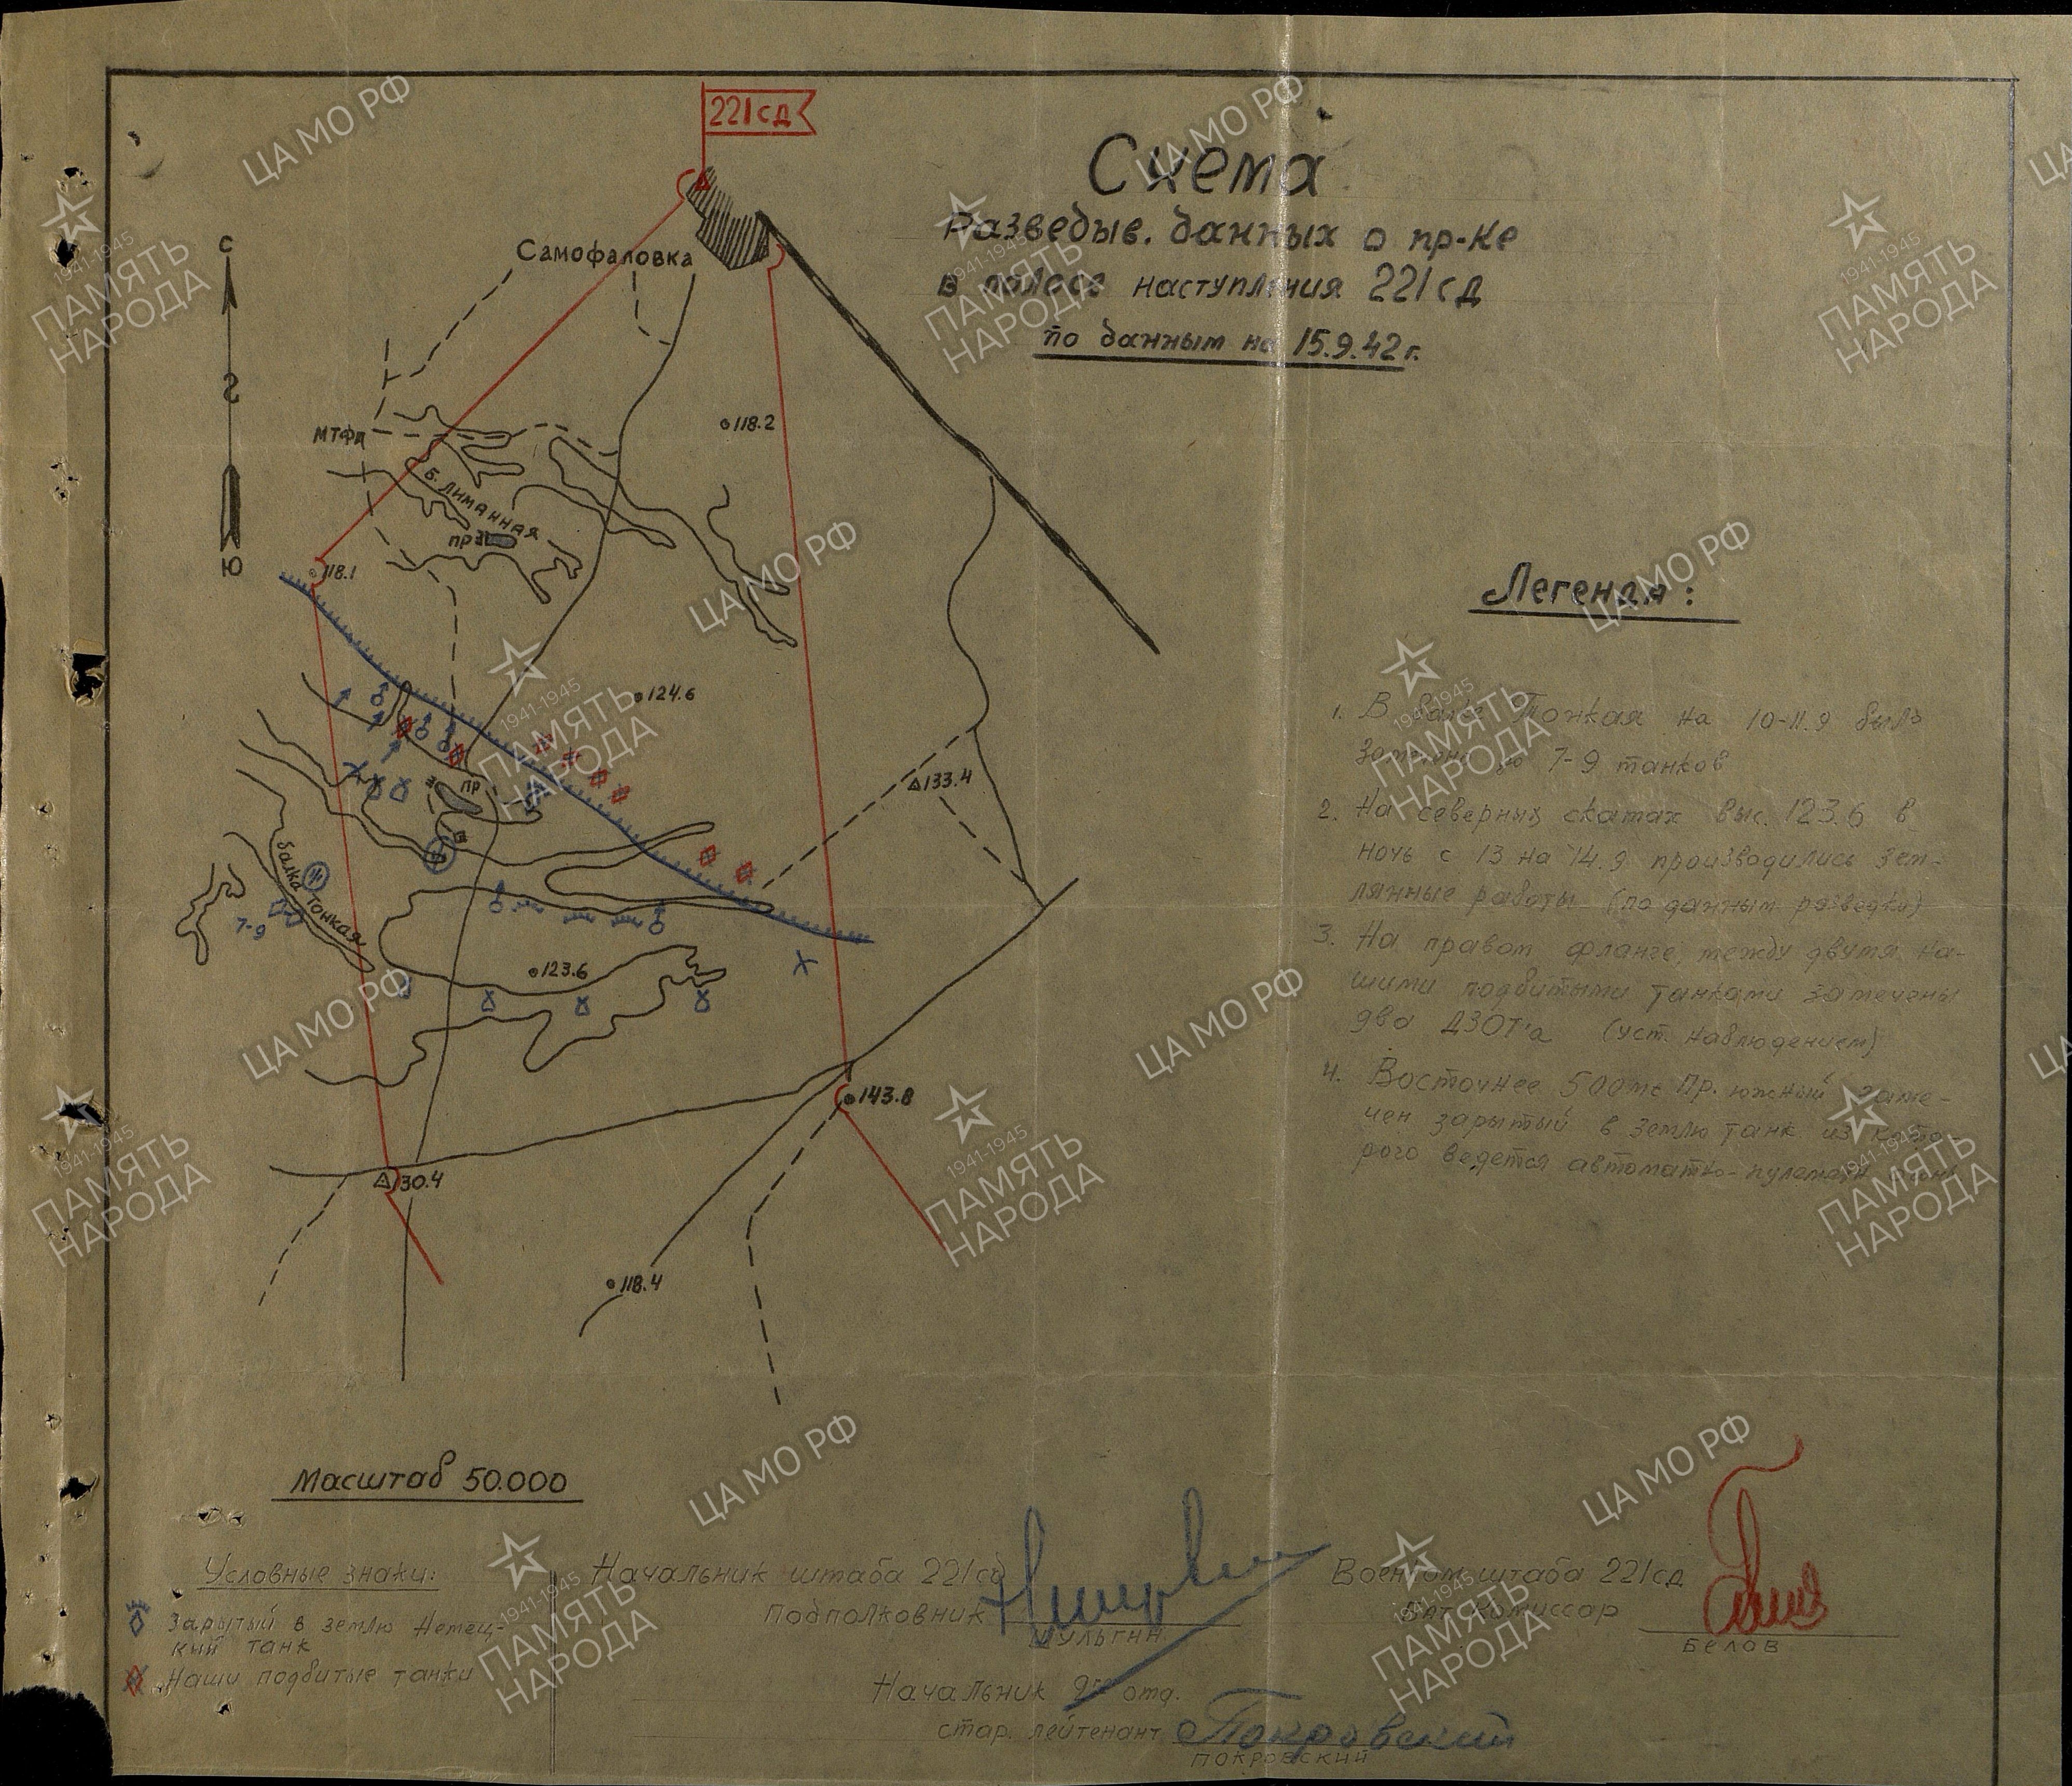 221сд
Схема
Разведыв. данных о пр-ке
в полосе наступления 221сд
по данным на 15.9.42г.
С
Самофаловка
118.2
МТФА
Б. Лиманная
пр
118.1
Ю
124.6
пр
133.4
балка Тонкая
7-9
123.6
143.8
130.4
118.4
Легенда:
1. В балке Тонкая на 10-11.9 было
замечено до 7-9 танков
2. На северных скатах выс. 123.6 в
ночь с 13 на 14.9 производились зем-
лянные работы (по данным разведки)
3. На правом фланге, между двумя на-
шими подбитыми танками замечены
два ДЗОТ'а (уст. наблюдением)
4. Восточнее 500 мт Пр. южный заме-
чен зарытый в землю танк из кото-
рого ведется автоматно-пулеметн. огонь
Масштаб 50.000
Условные знаки:
Зарытый в землю Немец-
кий танк
Наши подбитые танки
Начальник штаба 221сд
подполковник
Военком штаба 221сд
Бат. Комиссар
Белов
Начальник отд.
стар. лейтенант Покровский
Покровский
ЦА МО РФ
1941-1945
ПАМЯТЬ
НАРОДА